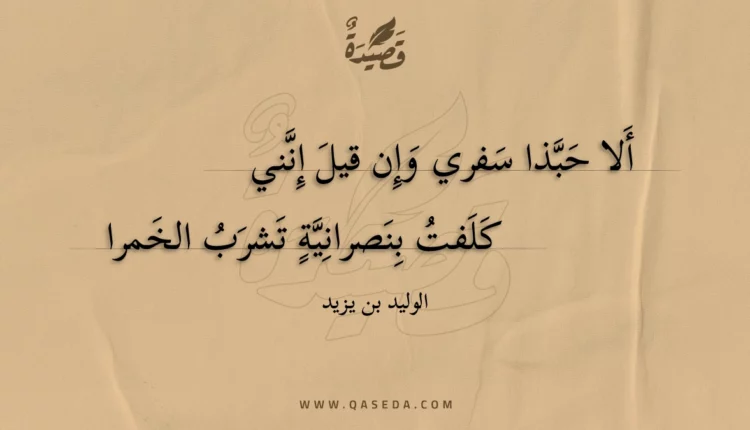 قَصِيدَةٌ
أَلا حَبَّذا سَفري وَإِن قيلَ إِنَّني
كَلَفتُ بِنَصرانِيَّةٍ تَشرَبُ الخَمرا
الوليد بن يزيد
WWW.QASEDA.COM